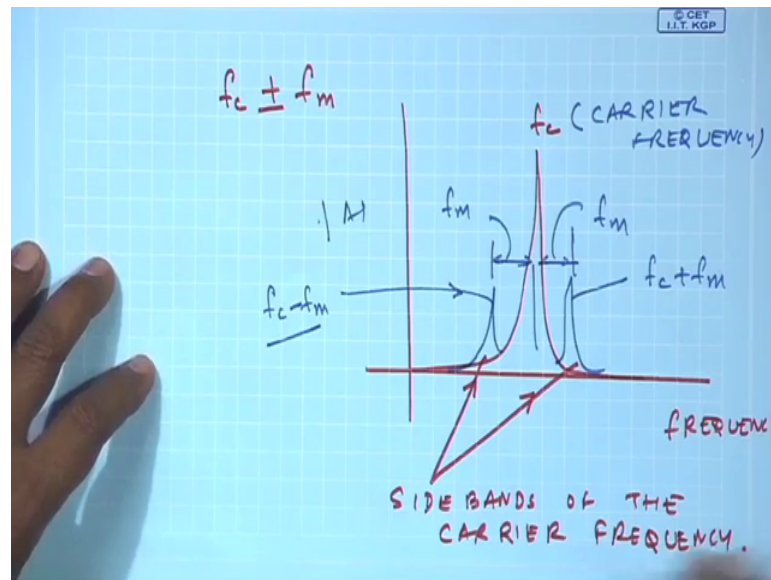 © CET
I.I.T. KGP
fc ± fm
fc (CARRIER
FREQUENCY)
|A|
fm
fm
fc-fm
fc+fm
FREQUENC
SIDE BANDS OF THE
CARRIER FREQUENCY.